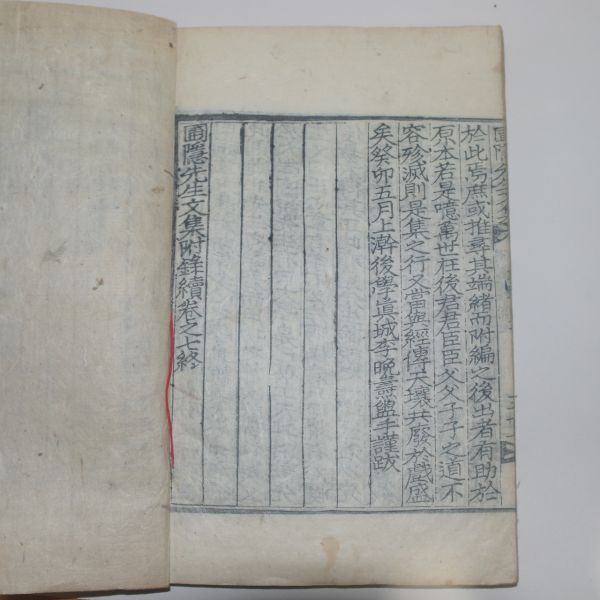 於此焉庶或推尋其端緒而附編之後出者有助於
原本若是噫萬世在後君君臣臣父父子子之道不
容殄滅則是集之行又當與經傳天壤共廢於戲盛
矣癸卯五月上澣後學眞城李晩燾盥手謹跋
圃隱先生文集附錄續卷之七終